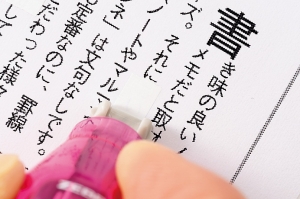 書き味の良い
メモだと取
ズ。それに
ノートやマル
ネ」は文句なしです。
定番なのに、罫線
だわった様